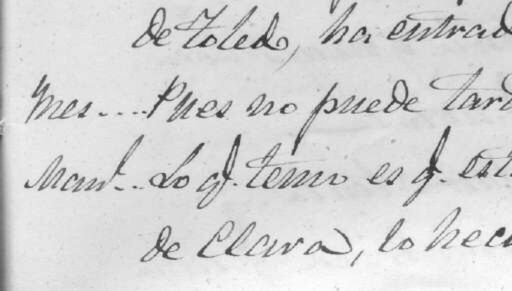 de Toledo, ha entrad
Ines.... Pues no puede tard
Man.l.. Lo q.e temo es q.e est
de Clara, lo hec